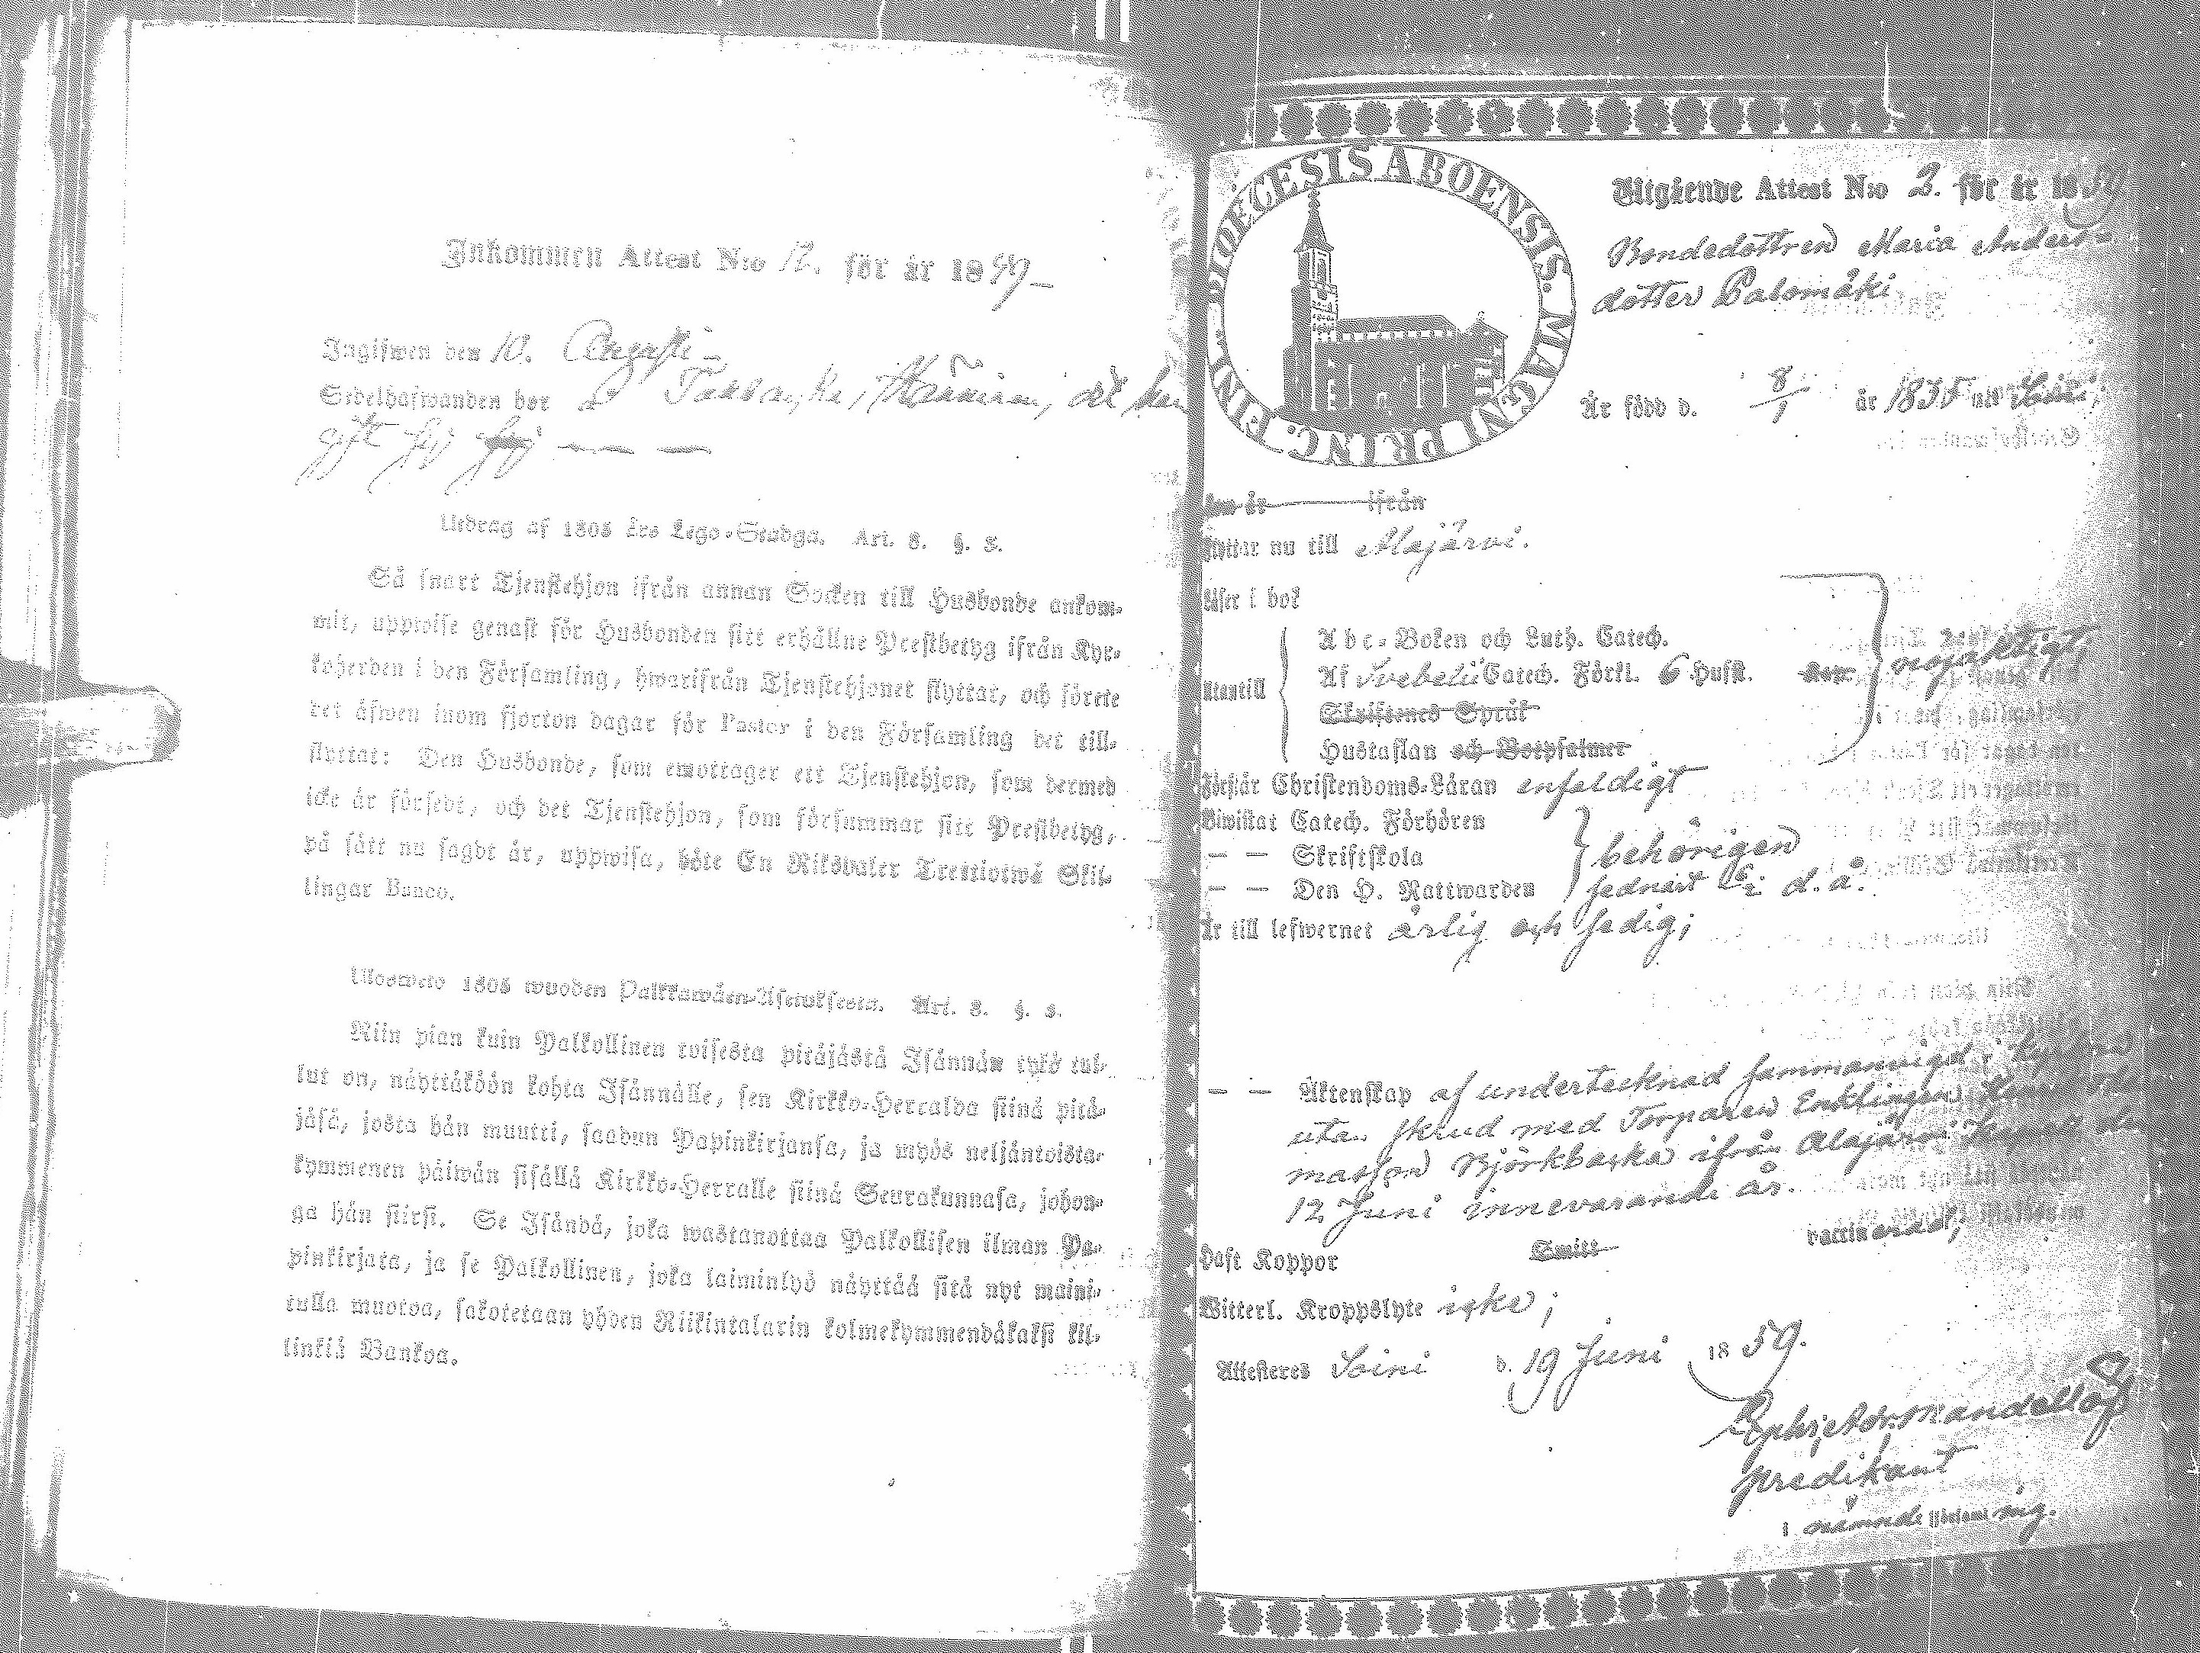 Inkommen Attest N:o 12. för år 1859
Ingifwen den 10. Augusti
Sedelhafwanden bor
gift sig
Utdrag af 1805 års Lego-Stadga. Art. 8. §. 3.
Så snart Tjenstehjon ifrån annan Socken till Husbonde ankom-
mit, uppwise genast för Husbonden sitt erhållne Prestbetyg ifrån Kyr-
koherden i den Församling, hwarifrån Tjenstehjonet flyttat, och förete
det äfwen inom fjorton dagar för Pastor i den Församling det till-
flyttat: Den Husbonde, som emottager ett Tjenstehjon, som dermed
icke är försedt, och det Tjenstehjon, som försummar sitt Prestbetyg,
på sätt nu sagdt är, uppwisa, böte En Riksdaler Trettiotwå Skil-
lingar Banco.
Uloswето 1805 wuoden Palkkawäen-Asetuksesta. Art. 8. §. 3.
Niin pian kuin Palkollinen toisesta pitäjästä Isännän tykö tul-
lut on, näyttäköön kohta Isännälle, sen Kirkko-Herralda siinä pitä-
jäsä, josta hän muutti, saadun Papinkirjansa, ja myös neljäntoista-
kymmenen päiwän sisällä Kirkko-Herralle siinä Seurakunnasa, johon-
ga hän siirsi. Se Isändä, joka wastanottaa Palkollisen ilman Pa-
pinkirjata, ja se Palkollinen, joka laiminlyö näyttää sitä nyt maini-
tulla muotoa, sakotetaan yhden Riikintalarin kolmekymmendäkaksi kil-
linkiä Bankoa.
DIOECESIS ABOENSIS. MAGNI PRINC. FINL.
Utgående Attest N:o 2. för år 1859
Bondedottren Maria Anders
dotter Palomäki
Är född d. 8/1 år 1835 uti Soini;
om år ifrån
flyttar nu till Alajärvi.
Läser i bok
Abc-Boken och Luth. Catech.
Utantill Af Svebelii Catech. Förkl. 6 Husst. nöjaktigt
Skriftenes Språk
Hustaflan och Botpsalmer
Förstår Christendoms-Läran enfaldigt
Biwistat Catech. Förhören
— — Skriftskola behörigen
— — Den H. Nattwarden sednast d. å.
Är till lefwernet ärlig och sedig;
— — Äktenskap af undertecknad sammanvigd i kyrkan
utan skrud med Torparen Enklingen
masson Björkbacka ifrån Alajärvi
12 Juni innevarande år.
Haft Koppor Smitt vaccinerad;
Witterl. Kroppslyte icke;
Attesteres Soini d. 19 Juni 1859.
predikant
i nämnde församling.